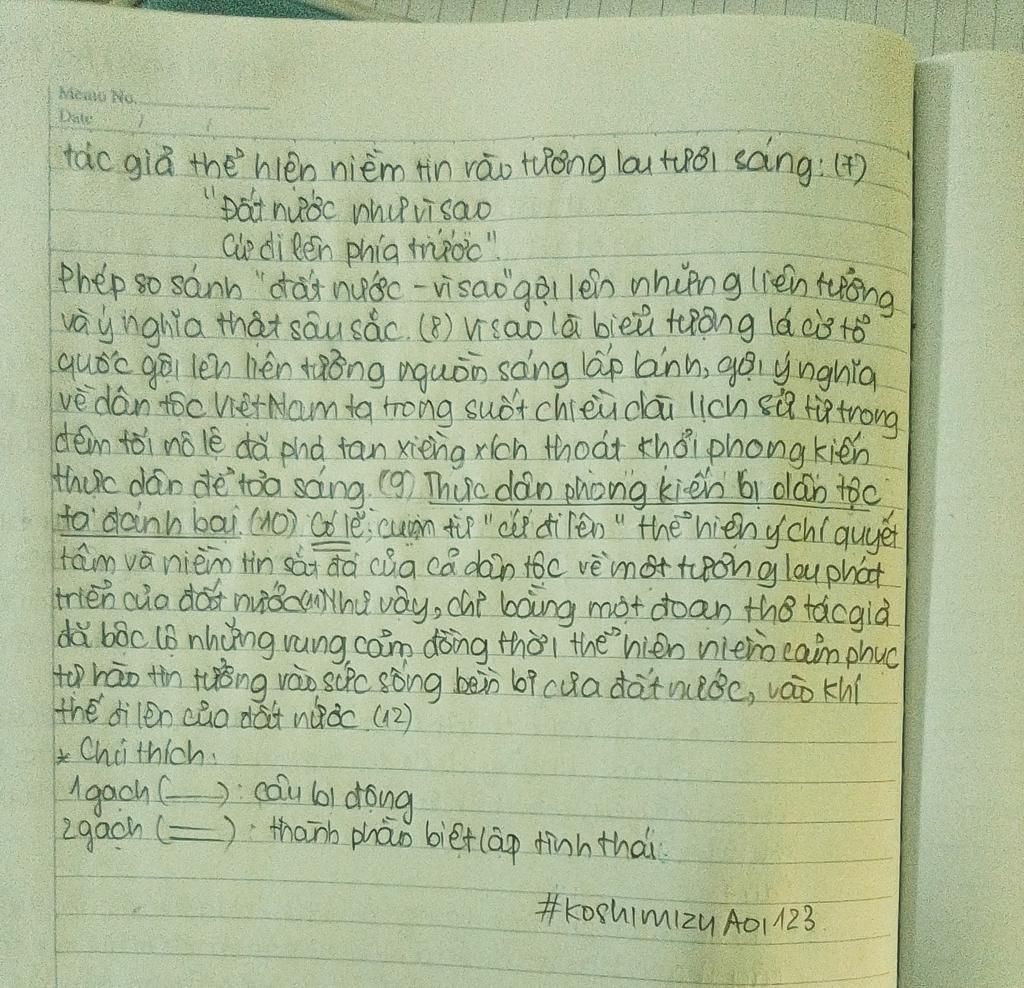 Memo No.
Date / /
tác giả thể hiện niềm tin vào tương lai tươi sáng: (7)
"Đất nước như vì sao
Cứ đi lên phía trước".
Phép so sánh "đất nước - vì sao" gợi lên những liên tưởng
và ý nghĩa thật sâu sắc. (8) Vì sao là biểu tượng lá cờ tổ
quốc gợi lên liên tưởng nguồn sáng lấp lánh, gợi ý nghĩa
về dân tộc Việt Nam ta trong suốt chiều dài lịch sử từ trong
đêm tối nô lệ đã phá tan xiềng xích thoát khỏi phong kiến
thực dân để tỏa sáng. (9) Thực dân phong kiến bị dân tộc
ta đánh bại. (10) Có lẽ, cụm từ "cứ đi lên" thể hiện ý chí quyết
tâm và niềm tin sắt đá của cả dân tộc về một tương lay phát
triển của đất nước (11) Như vậy, chỉ bằng một đoạn thơ tác giả
đã bộc lộ những rung cảm đồng thời thể hiện niềm cảm phục
tự hào tin tưởng vào sức sống bền bỉ của đất nước, vào khí
thế đi lên của đất nước (12)
* Chú thích:
1 gạch (—): câu bị động
2 gạch (=): thành phần biệt lập tình thái.
#KoshimizuAoi123